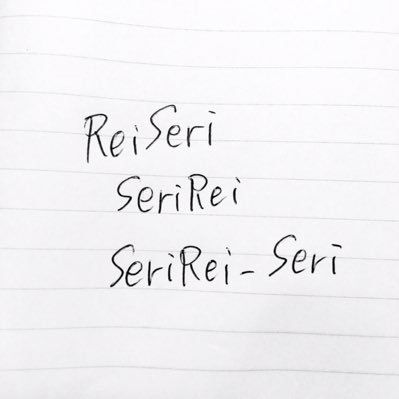 ReiSeri
SeriRei
SeriRei-Seri